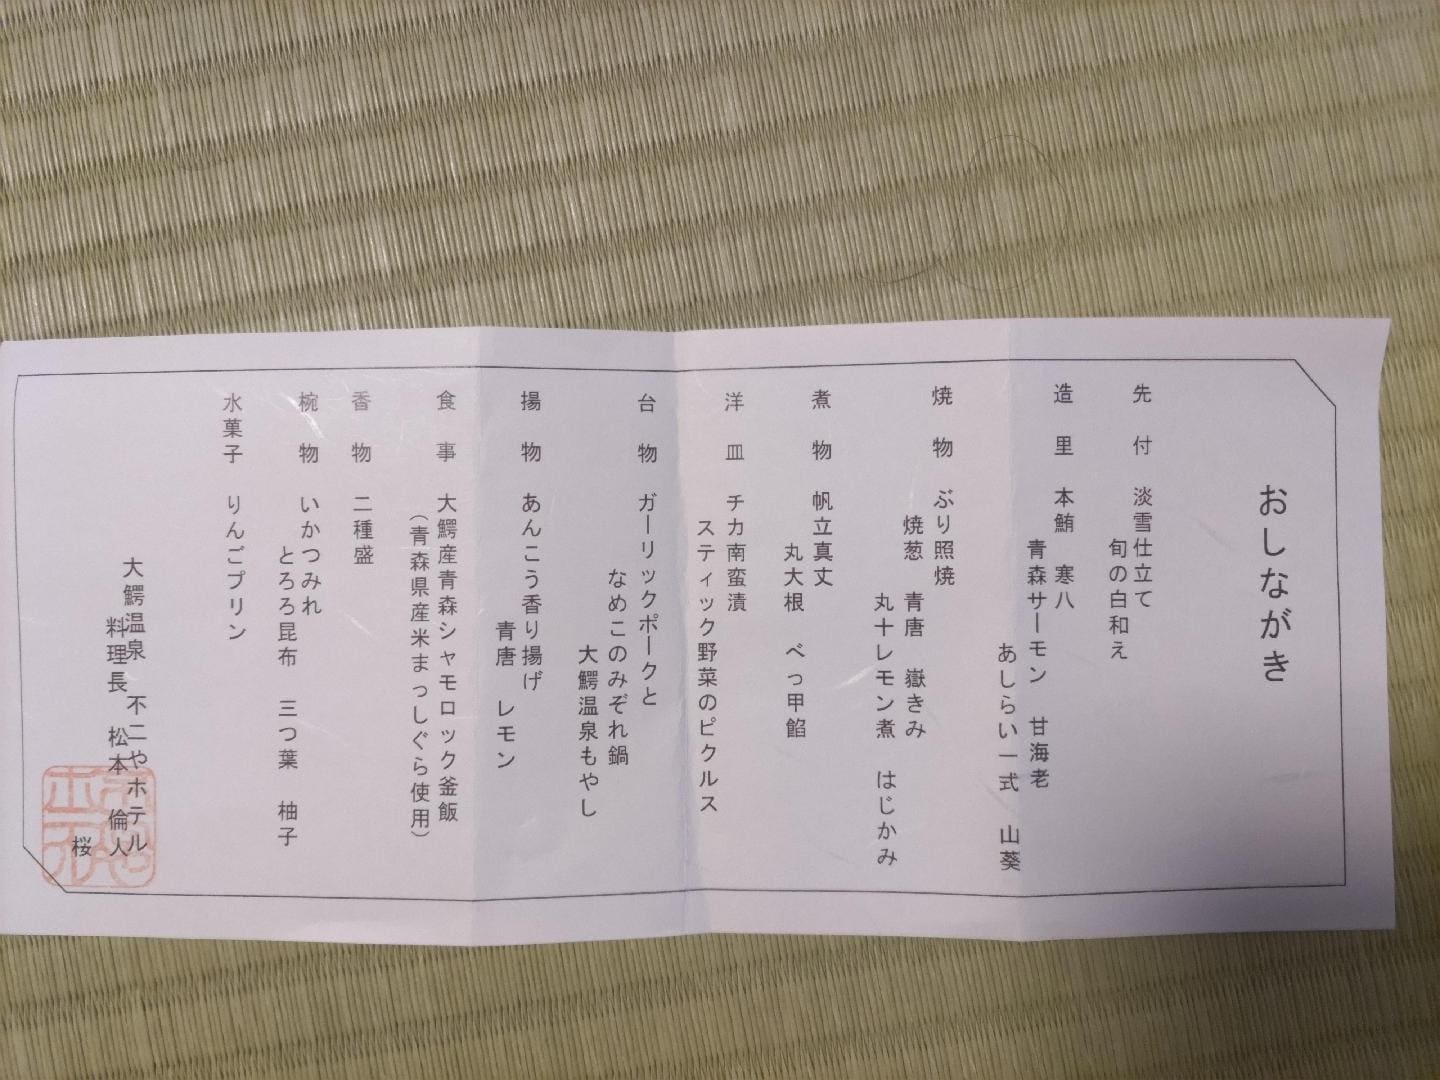 おしながき
先付 淡雪仕立て
旬の白和え
造里 本鮪 寒八
青森サーモン 甘海老
あしらい一式 山葵
焼物 ぶり照焼
焼葱 青唐 嶽きみ
丸十レモン煮 はじかみ
煮物 帆立真丈
丸大根 べっ甲餡
洋皿 チカ南蛮漬
スティック野菜のピクルス
台物 ガーリックポークと
なめこのみぞれ鍋
大鰐温泉もやし
揚物 あんこう香り揚げ
青唐 レモン
食事 大鰐産青森シャモロック釜飯
（青森県産米まっしぐら使用）
香物 二種盛
椀物 いかつみれ
とろろ昆布 三つ葉 柚子
水菓子 りんごプリン
大鰐温泉 不二やホテル
料理長 松本 倫人
桜